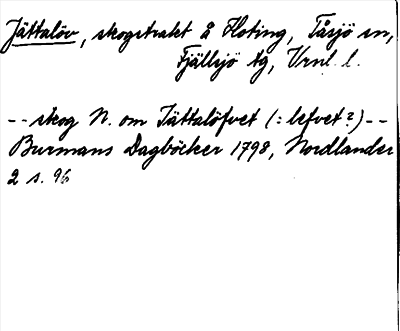 Jättalöv, skogstrakt å Hoting, Tåsjö sn,
Fjällsjö tg, Vrnl. l.
-- skog N. om Jättalöfvet (: lefvet?) --
Burmans Dagböcker 1798, Nordlander
2 s. 96